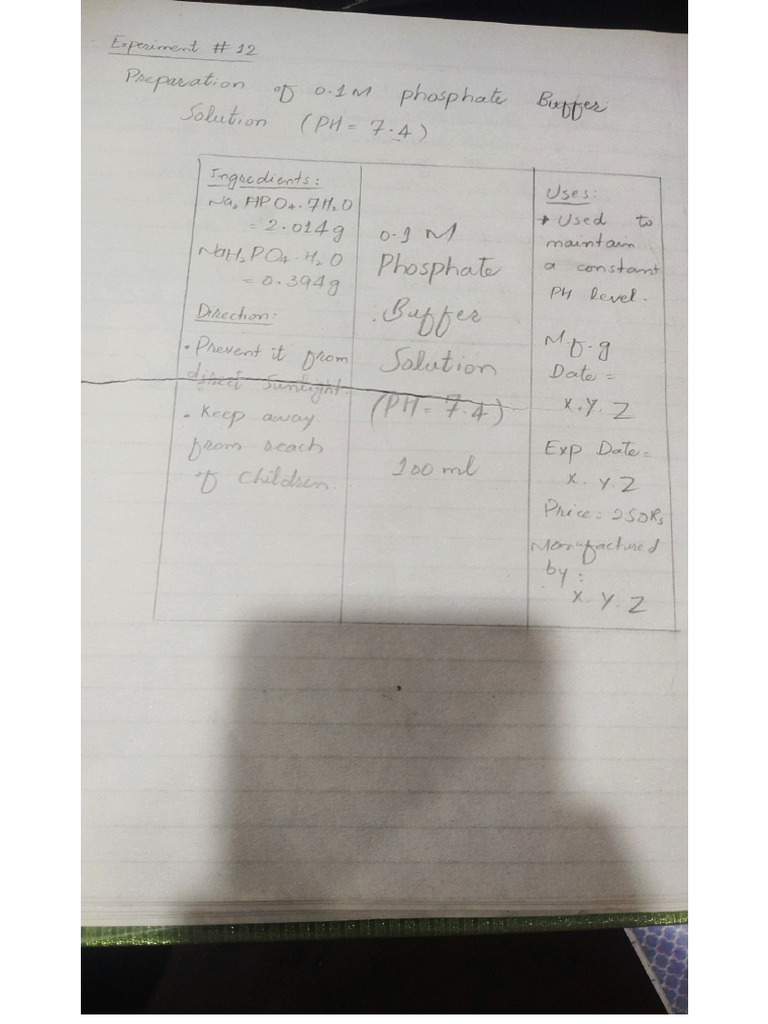 Experiment # 12
Preparation of 0.1M phosphate Buffer
Solution (PH = 7.4)
Ingredients:
Na₂ HPO₄.7H₂O
= 2.014g
NaH₂PO₄.H₂O
= 0.394g
Direction:
• Prevent it from
direct sunlight.
• Keep away
from reach
of children.
0.1 M
Phosphate
Buffer
Solution
(PH = 7.4)
100 ml
Uses:
→ Used to
maintain
a constant
PH level.
M.f.g
Date =
X.Y.Z
Exp Date =
X.Y.Z
Price = 250Rs
Manufactured
by:
X.Y.Z